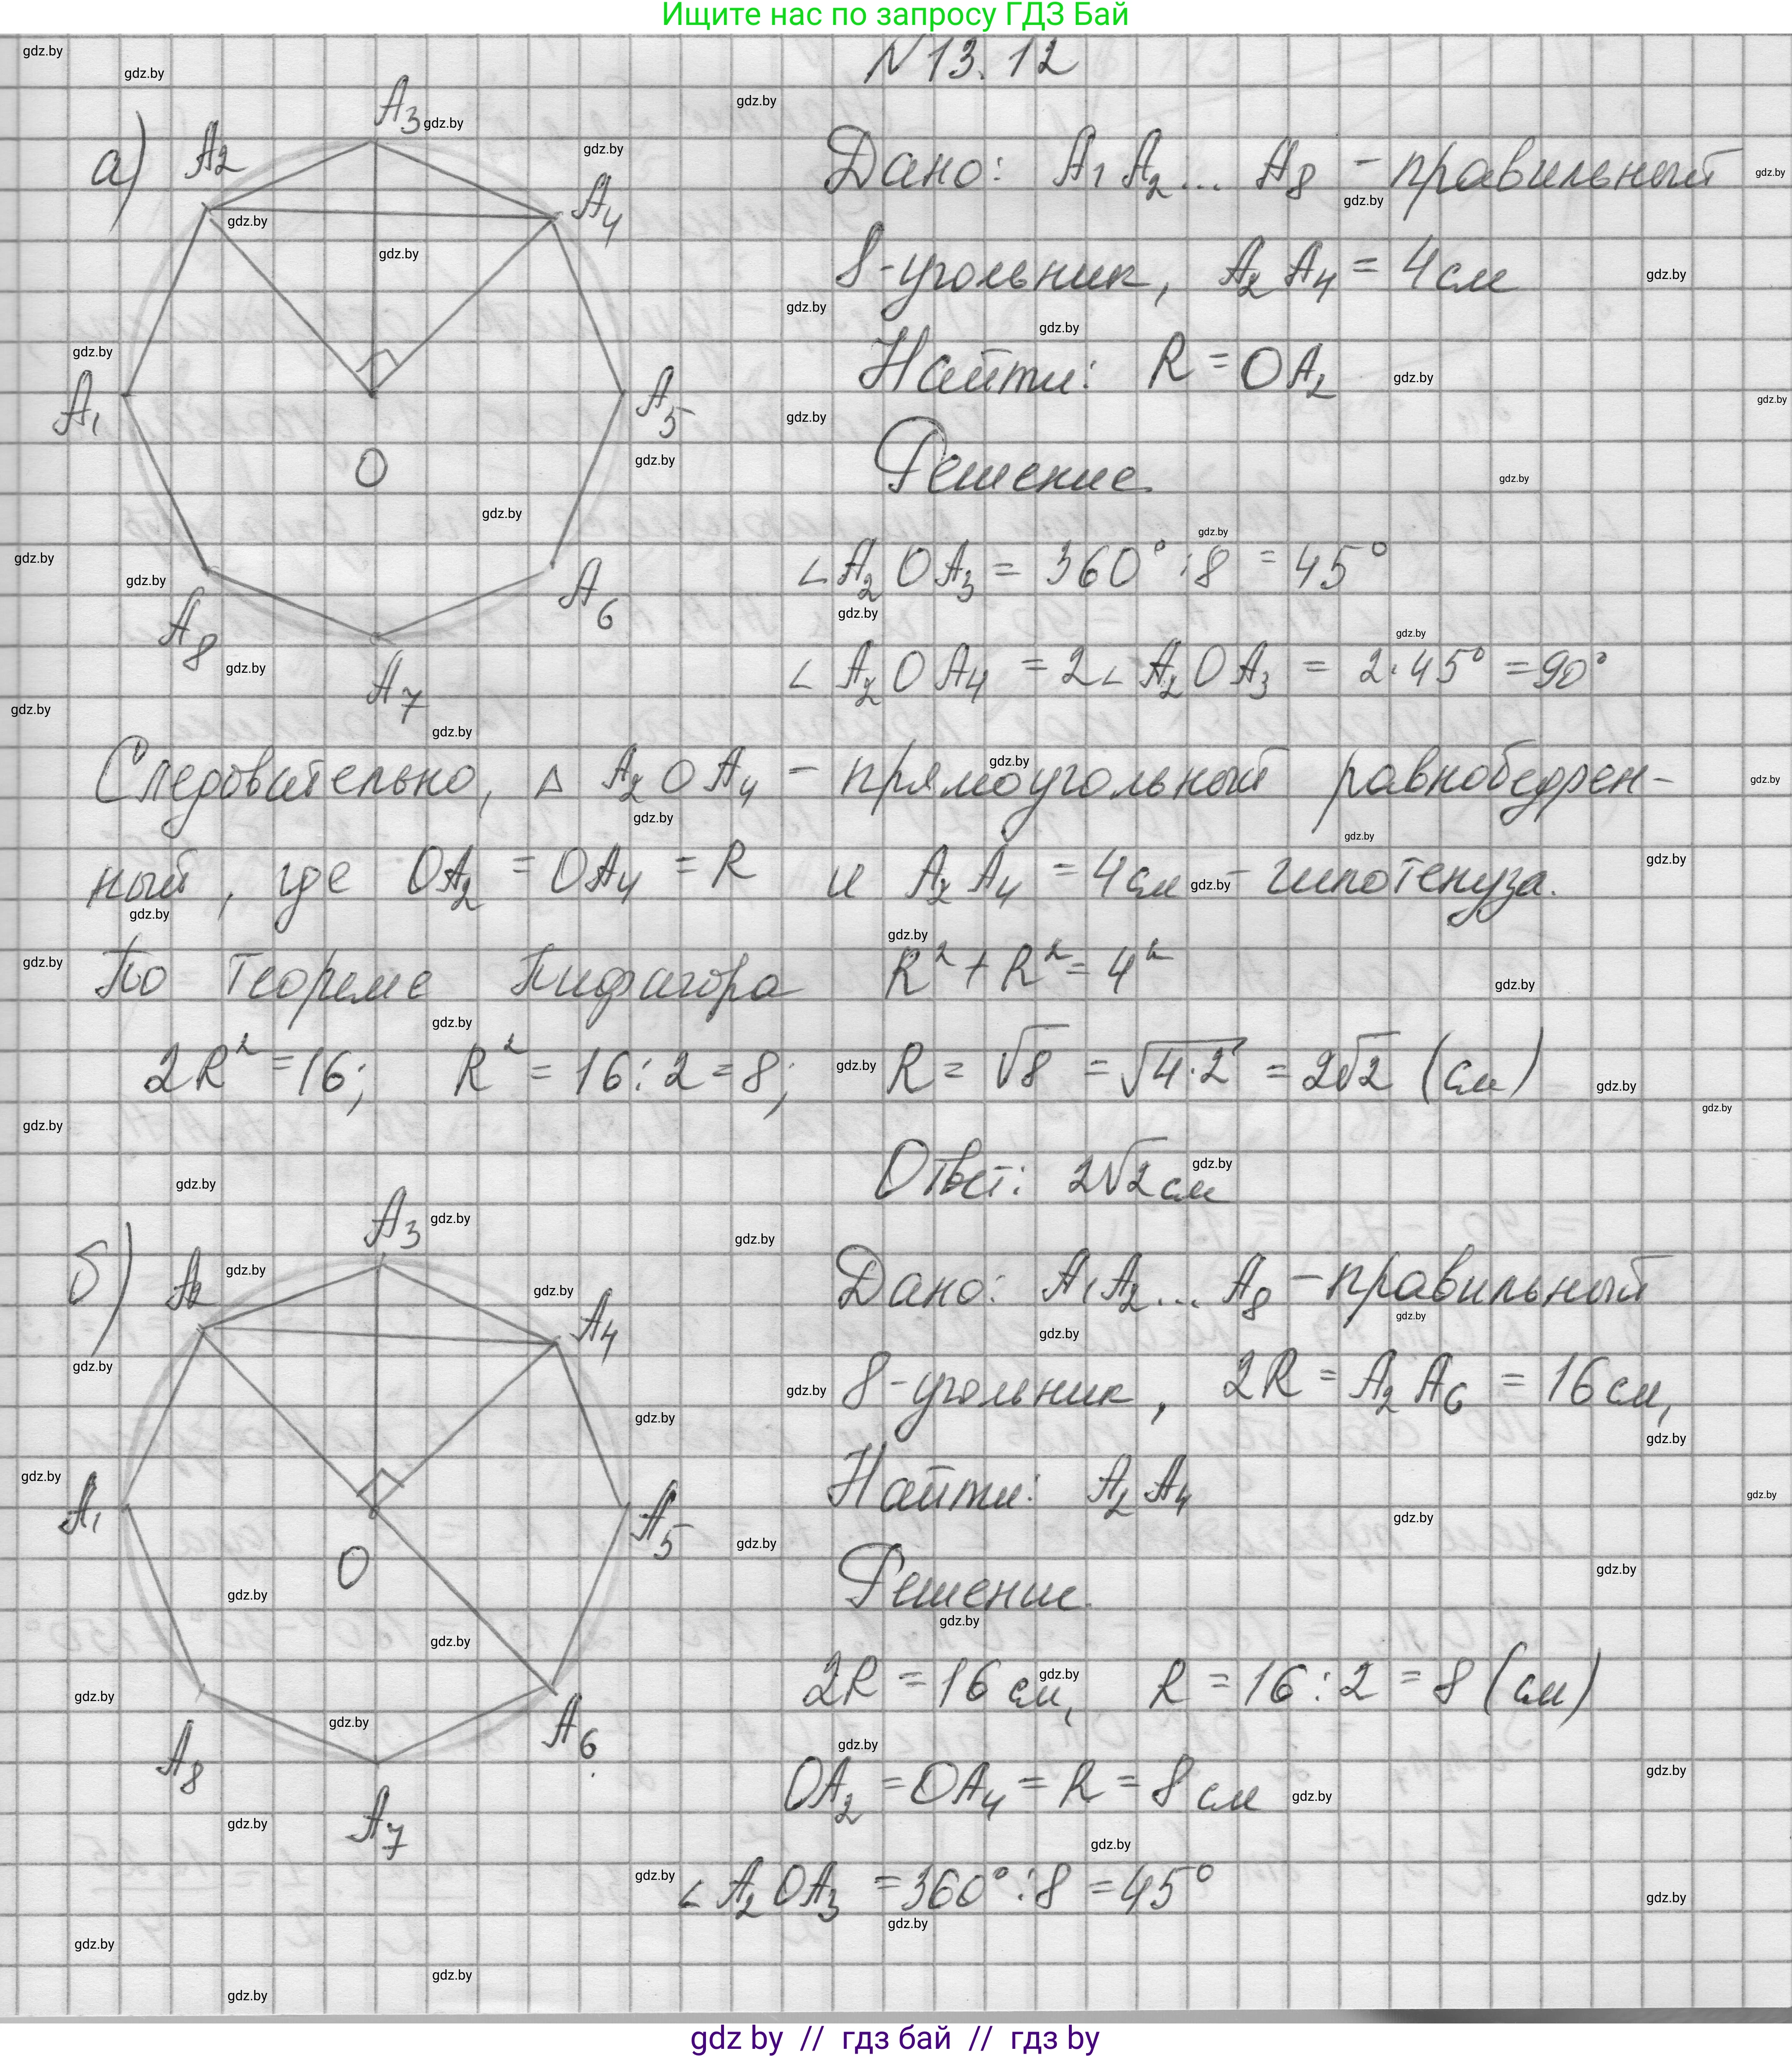 Ищите нас по запросу ГДЗ Бай
N 13.12
а)
A₃
A₂
A₄
A₁
A₅
O
A₆
A₈
A₇
Дано: A₁A₂... A₈ - правильный
8-угольник, A₂A₄ = 4 см
Найти: R = OA₂
Решение.
∠A₂OA₃ = 360° : 8 = 45°
∠A₂OA₄ = 2∠A₂OA₃ = 2·45° = 90°
Следовательно, △ A₂OA₄ - прямоугольный равнобедрен-
ный, где OA₂ = OA₄ = R и A₂A₄ = 4 см - гипотенуза.
По теореме Пифагора R² + R² = 4²
2R² = 16; R² = 16 : 2 = 8; R = √8 = √4·2 = 2√2 (см)
Ответ: 2√2 см
б)
A₃
A₂
A₄
A₁
A₅
O
A₆
A₈
A₇
Дано: A₁A₂... A₈ - правильный
8-угольник, 2R = A₂A₆ = 16 см,
Найти: A₂A₄
Решение.
2R = 16 см, R = 16 : 2 = 8 (см)
OA₂ = OA₄ = R = 8 см
∠A₂OA₃ = 360° : 8 = 45°
gdz by // гдз бай // гдз by